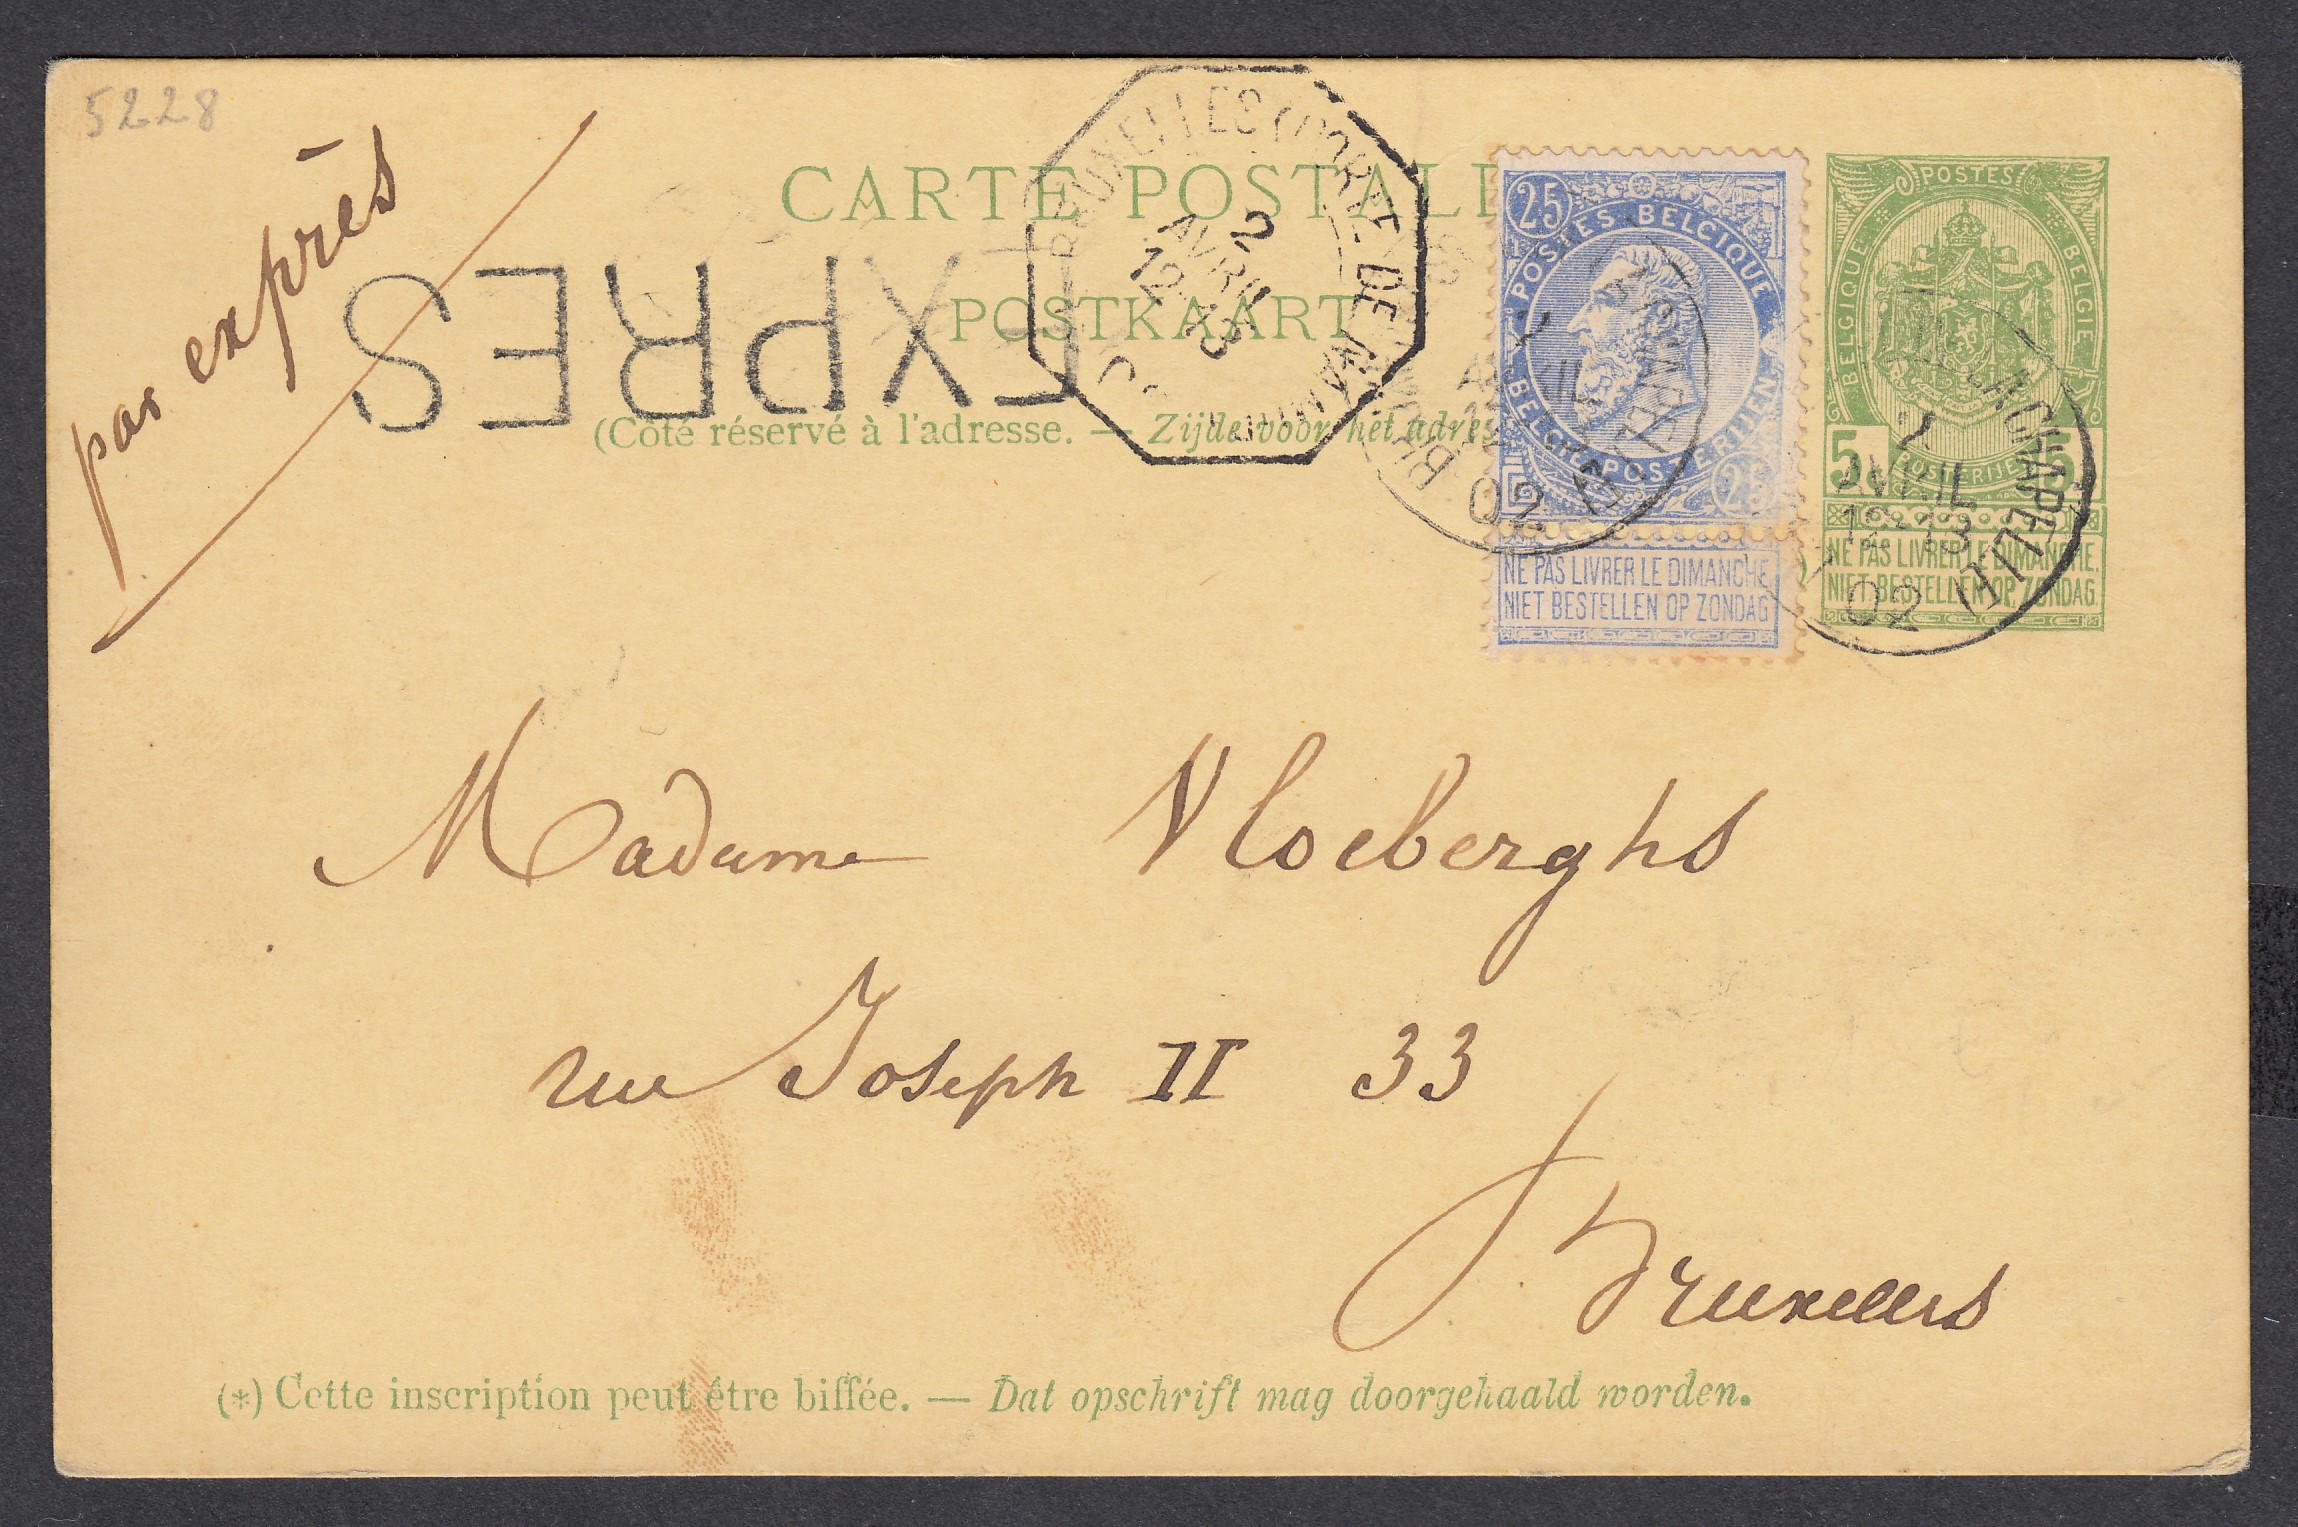 5228
par exprès
CARTE POSTAL
POSTKAART
EXPRES
(Côté réservé à l'adresse. — Zijde voor het adres
BRUXELLES (PORTE DE
2
AVRIL
12-13
25
POSTES BELGIQUE
BELGIE POSTERIJEN
25
NE PAS LIVRER LE DIMANCHE
NIET BESTELLEN OP ZONDAG
02
POSTES
BELGIQUE
BELGIE
5 5
POSTERIJEN
NE PAS LIVRER LE DIMANCHE.
NIET BESTELLEN OP ZONDAG.
2
AVRIL
12-13
02
Madame Vloeberghs
rue Joseph II 33
Bruxelles
(*) Cette inscription peut être biffée. — Dat opschrift mag doorgehaald worden.